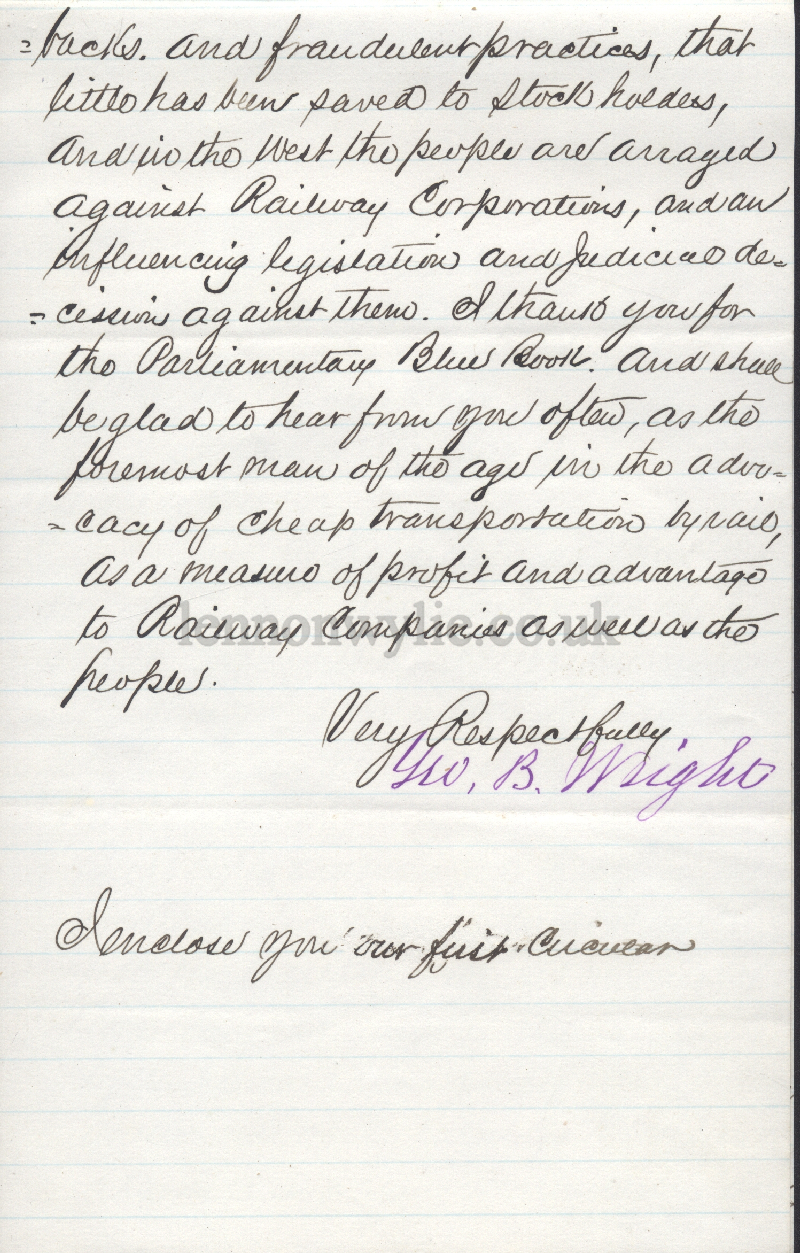 =backs. and fraudulent practices, that
little has been saved to Stock holders,
and in the West the people are arrayed
against Railway Corporations, and are
influencing legislation and Judicial de=
=cission against them. I thank you for
the Parliamentary Blue Book. and shall
be glad to hear from you often, as the
foremost man of the age in the advo=
=cacy of cheap transportation by rail,
as a measure of profit and advantage
to Railway Companies as well as the
people.
lennonwylie.co.uk
Very Respectfully
Geo. B. Wright
I enclose you our first Circular